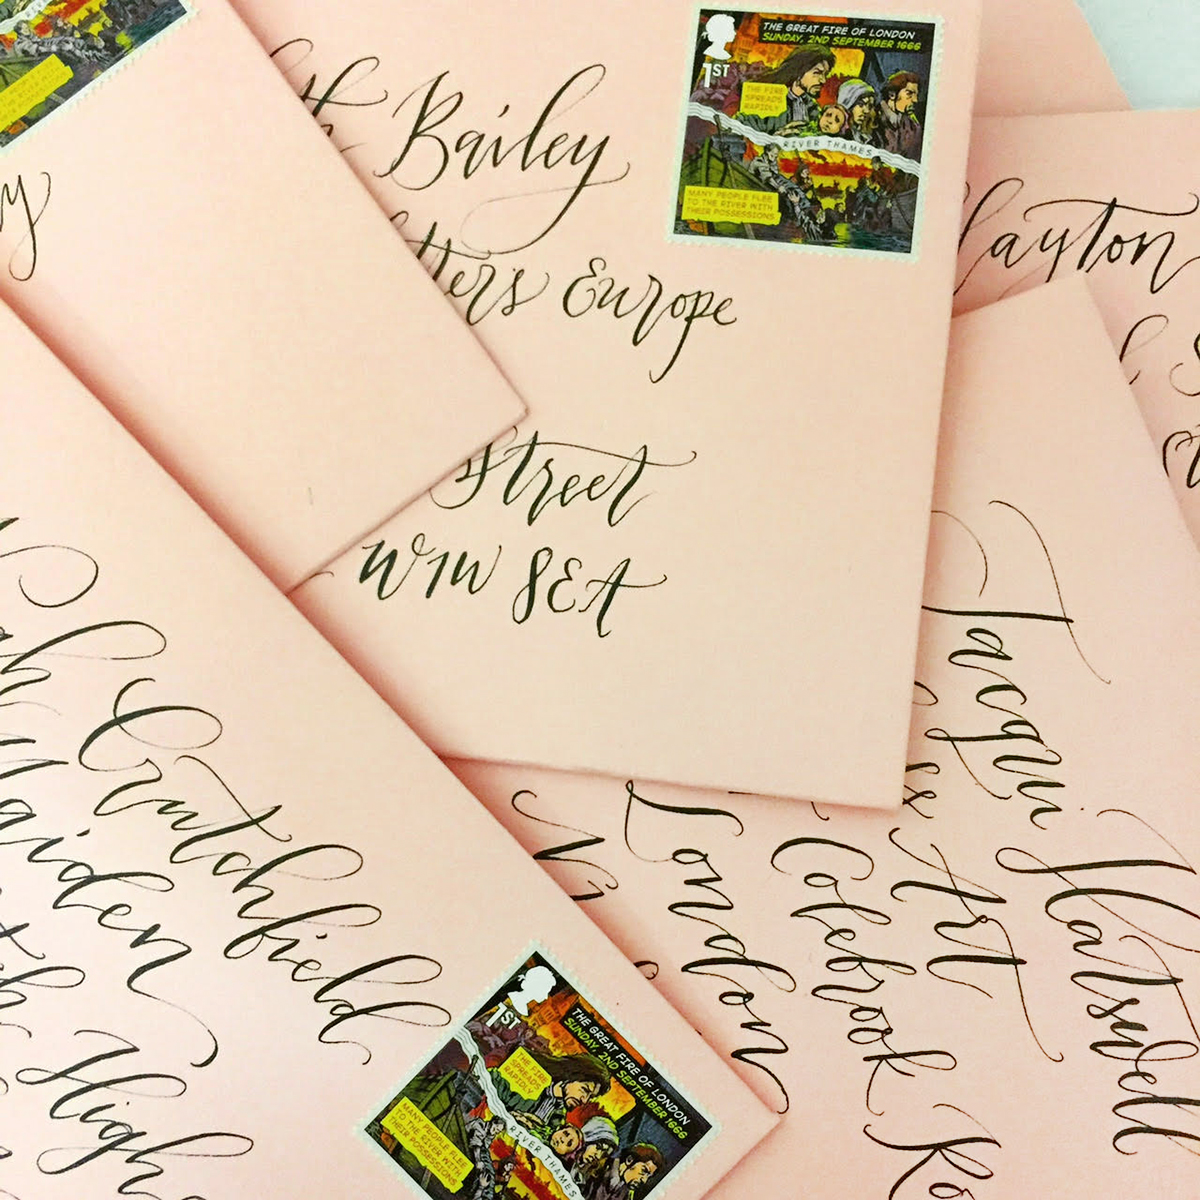 Bailey
Europe
Street
W1W 8EA
THE GREAT FIRE OF LONDON
SUNDAY, 2ND SEPTEMBER 1666
1ST
THE FIRE
SPREADS
RAPIDLY
RIVER THAMES
MANY PEOPLE FLEE
TO THE RIVER WITH
THEIR POSSESSIONS
layton
Crutchfield
Maiden
High
THE GREAT FIRE OF LONDON
SUNDAY, 2ND SEPTEMBER 1666
1ST
THE FIRE
SPREADS
RAPIDLY
RIVER THAMES
MANY PEOPLE FLEE
TO THE RIVER WITH
THEIR POSSESSIONS
Jacqui Hartwell
Art
Colebrook Ro
London
N